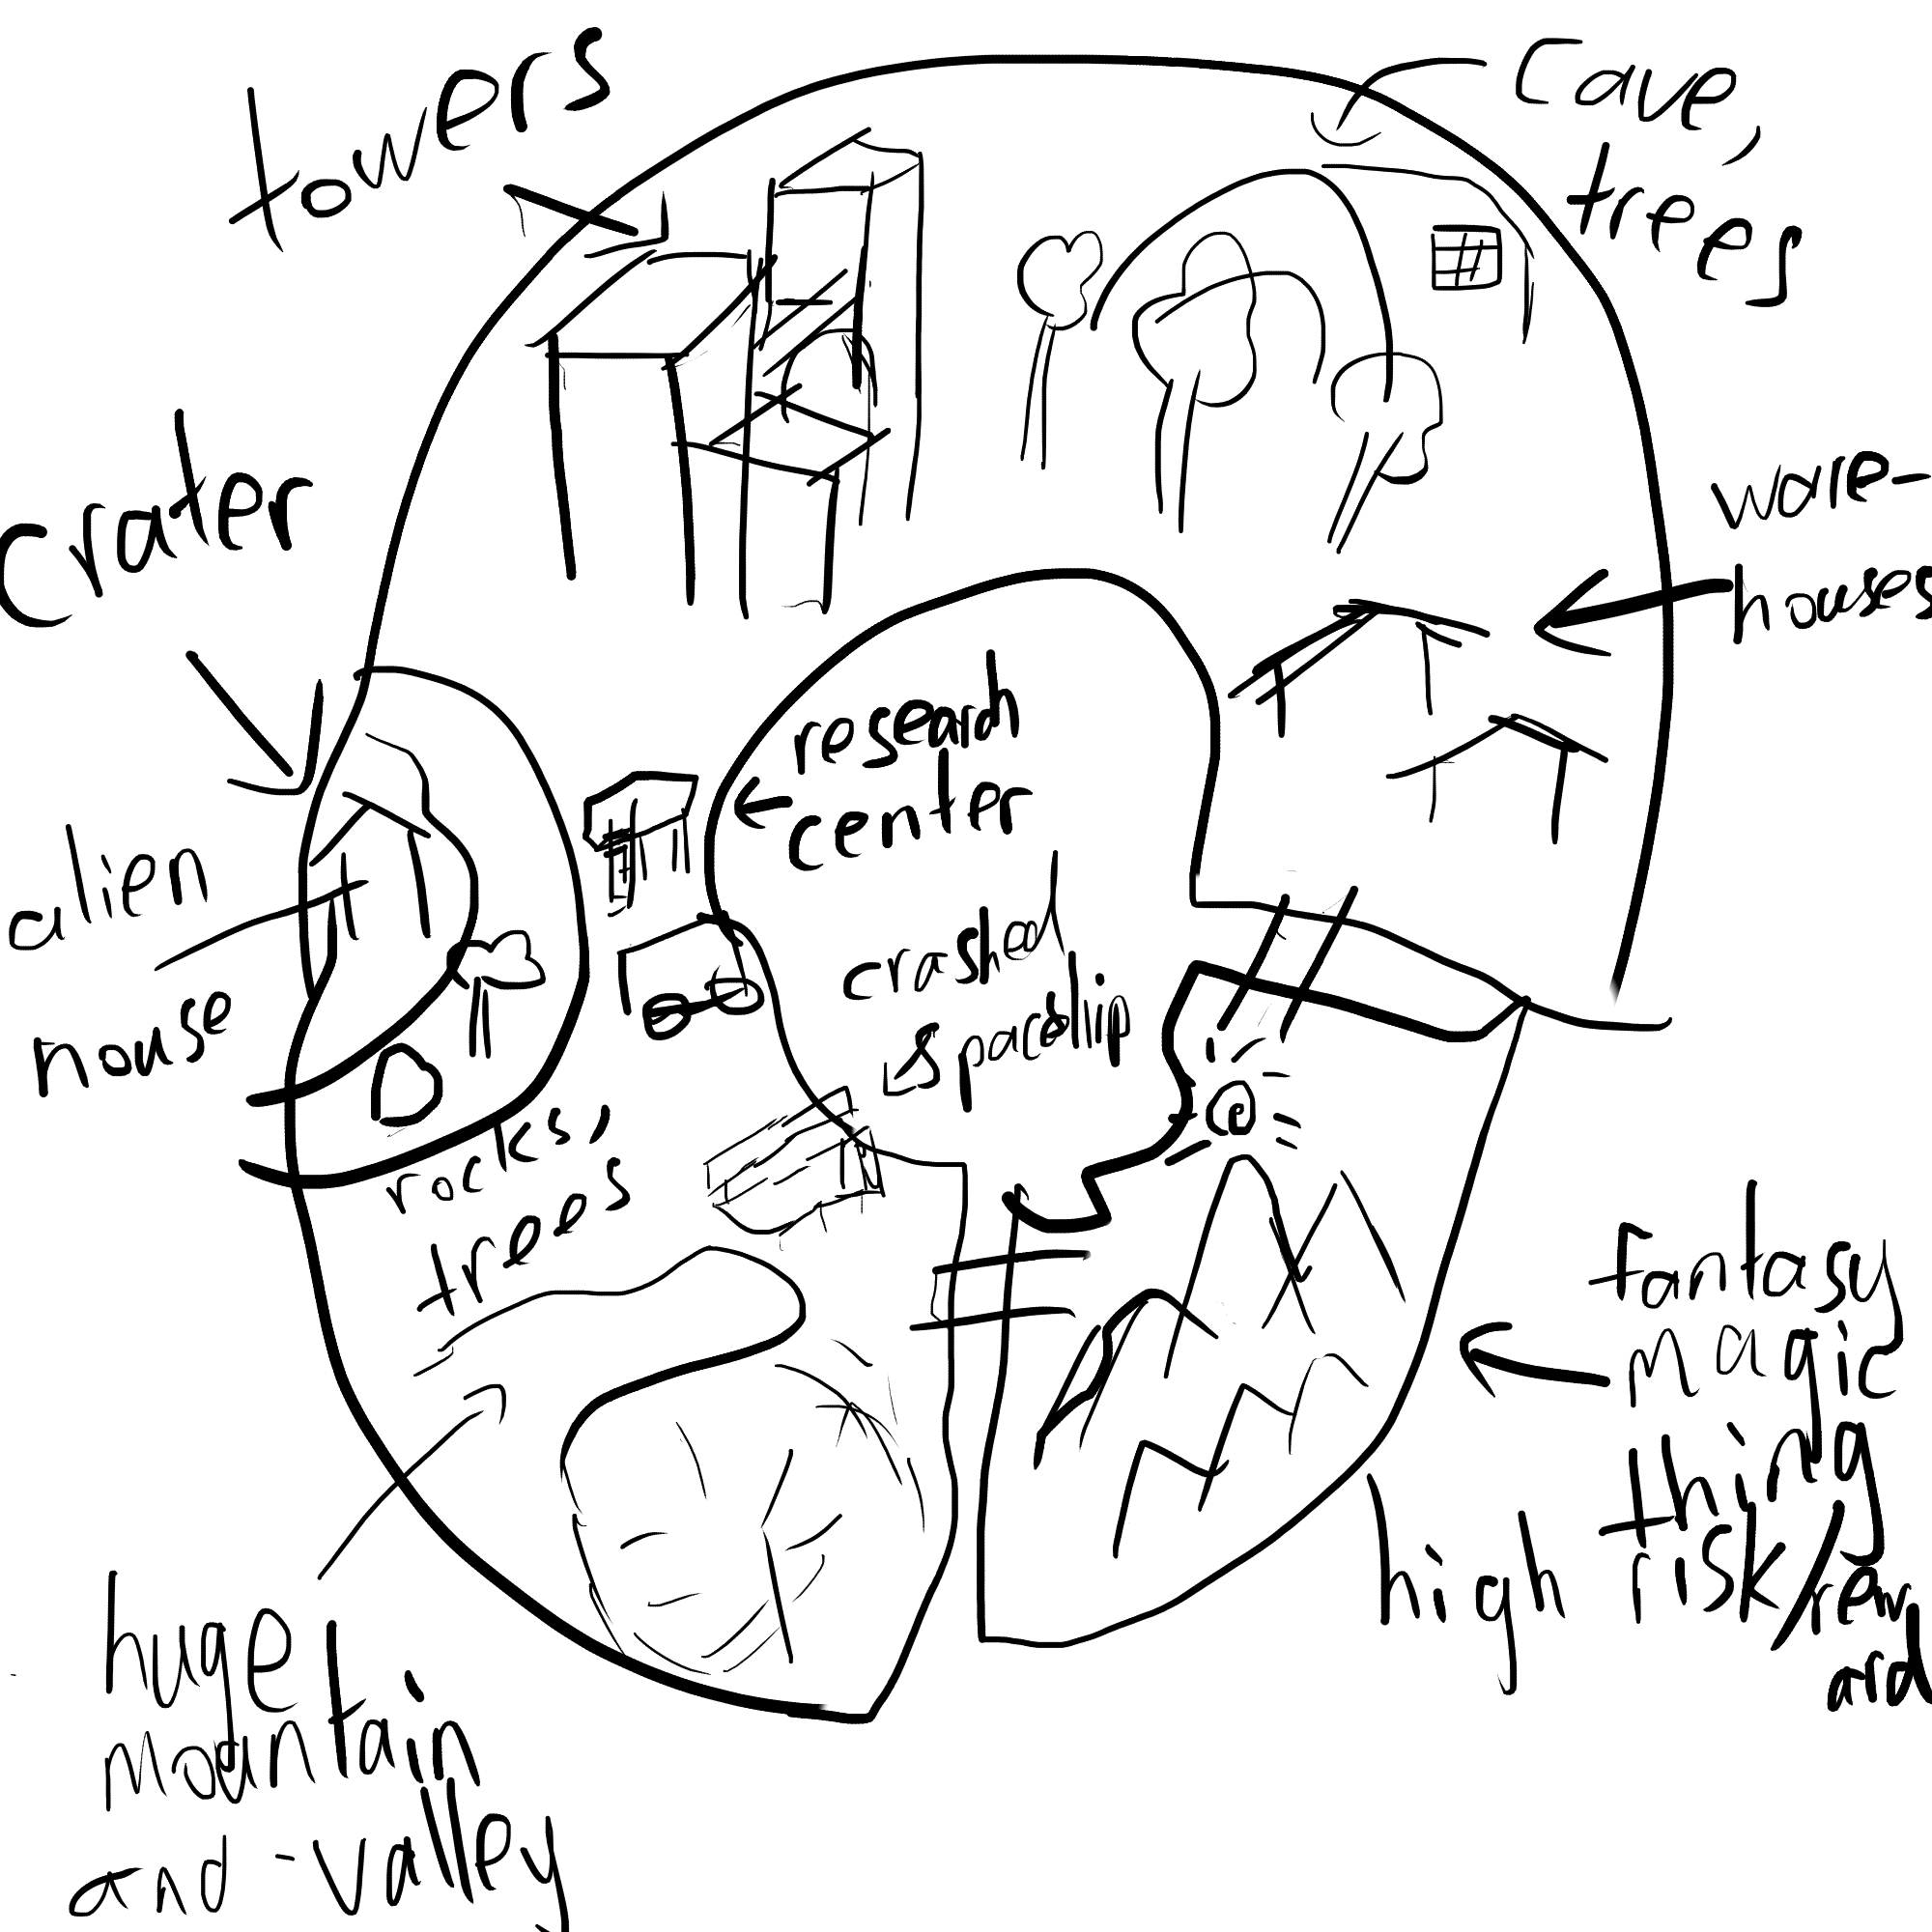 towers
cave,
trees
crater
ware-
houses
research
center
alien
house
crashed
spaceship
rocks,
trees
fantasy
magic
thing
high risk/rew
ard
huge
mountain
and valley